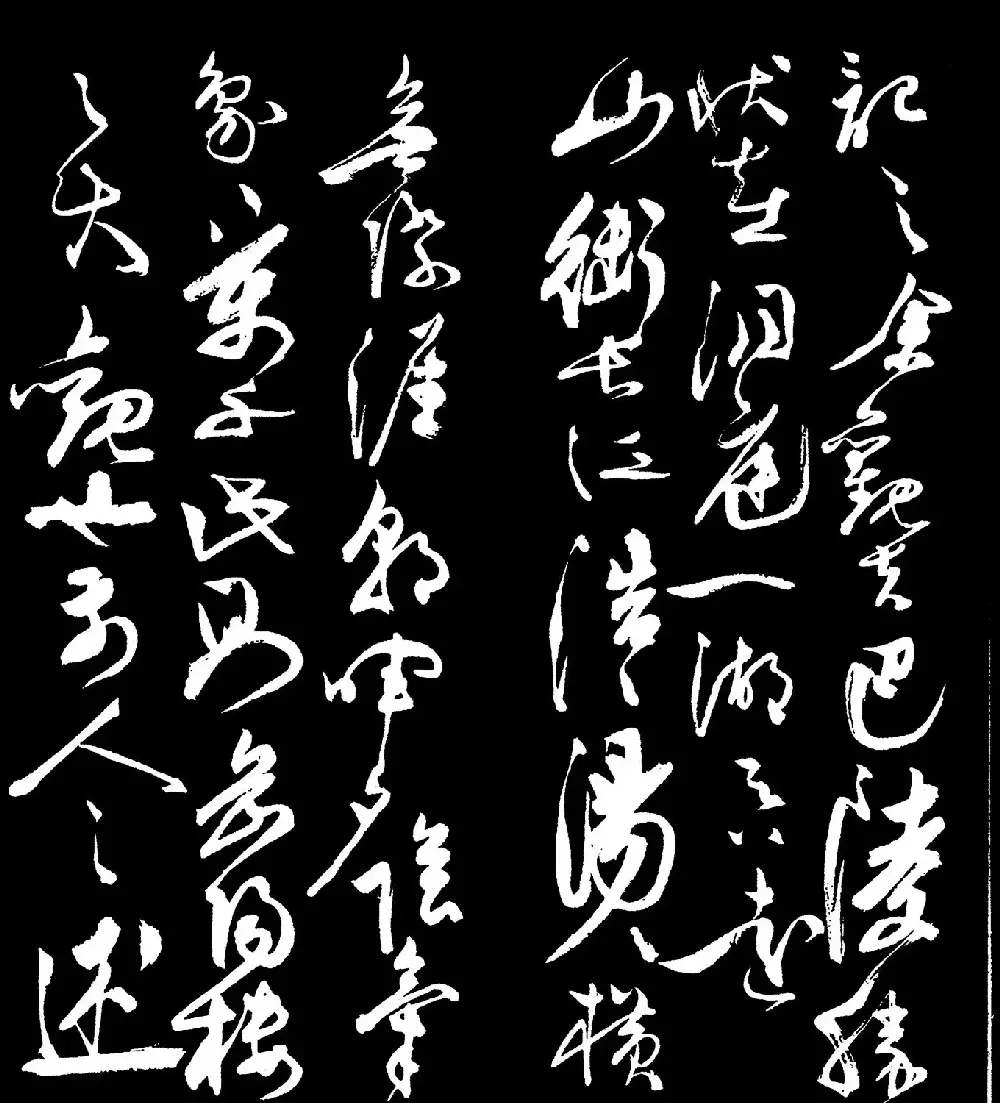 記之余觀夫巴陵勝
狀在洞庭一湖吞遠
山銜長江浩浩湯湯橫
無際涯朝暉夕陰氣
象萬千此則岳陽樓
之大觀也前人之述